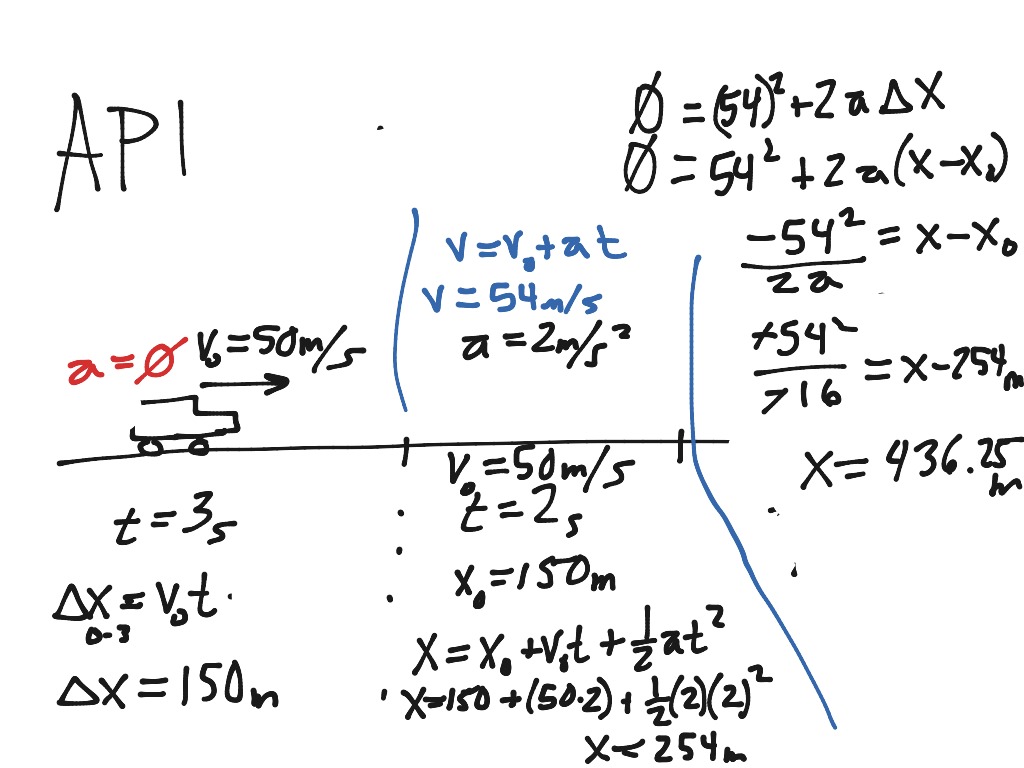 API
a = Ø
V₀ = 50m/s
t = 3s
Δx = V₀t
0-3
Δx = 150m
V = V₀ + at
V = 54m/s
a = 2m/s²
V₀ = 50m/s
t = 2s
x₀ = 150m
x = x₀ + V₀t + 1/2 at²
x = 150 + (50·2) + 1/2 (2)(2)²
x = 254m
Ø = (54)² + 2aΔx
Ø = 54² + 2a(x - x₀)
-54²/2a = x - x₀
+54²/+16 = x - 254m
x = 436.25m